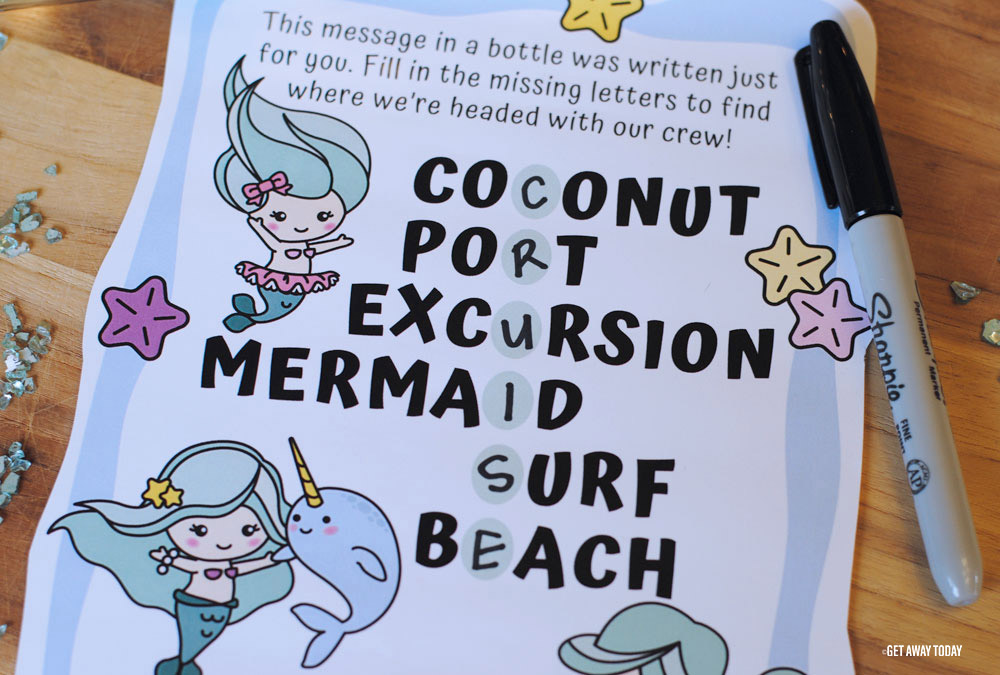 This message in a bottle was written just
for you. Fill in the missing letters to find
where we're headed with our crew!
COCONUT
PORT
EXCURSION
MERMAID
SURF
BEACH
Sharpie
Permanent Marker
FINE
AP
©GET AWAY TODAY